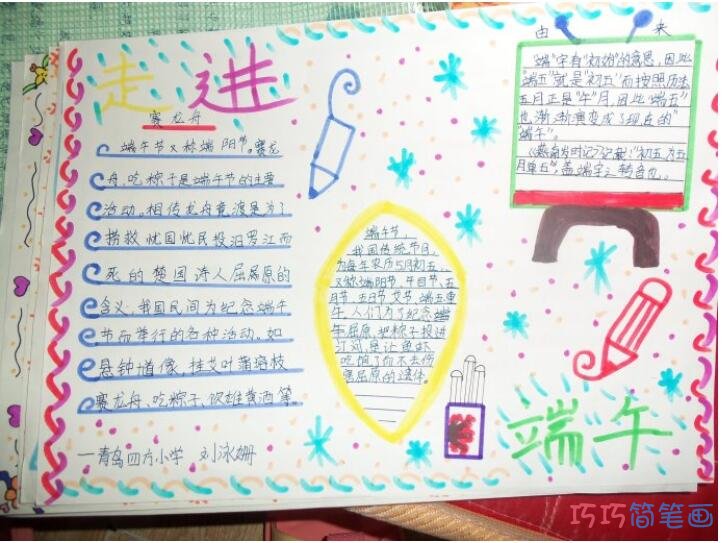 走进
赛龙舟
端午节又称端阳节。赛龙
舟、吃粽子是端午节的主要
活动。相传龙舟竞渡是为了
捞救忧国忧民投汨罗江而
死的楚国诗人屈原的
含义,我国民间为纪念端午
节而举行的各种活动。如
悬钟馗像,挂艾叶菖蒲
赛龙舟、吃粽子、饮雄黄酒等
一青岛四方小学 刘泳姗
端午节,
我国传统节日,
为每年农历5月初五,
又称端阳节、午日节、五
月节、五日节、艾节、端五、重
午,人们为了纪念端
午屈原,把粽子投进
江河是让鱼虾
吃饱了而不去伤
害屈原的遗体。
由来
"端"字有"初始"的意思,因此
"端五"就是"初五"而按照历法
五月正是"午"月,因此"端五"
也渐渐演变成了现在的
"端午"。
《燕京岁时记》记载:"初五为五
月单五,盖端字之转音也。
端午
巧巧简笔画